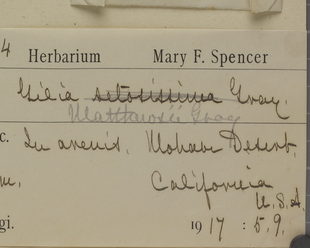 4 Herbarium Mary F. Spencer
Gilia setosissima Gray.
Matthewsii Gray
c. In arenis. Mohave Desert.
m. California
U.S.A.
gi. 1917: 5.9.